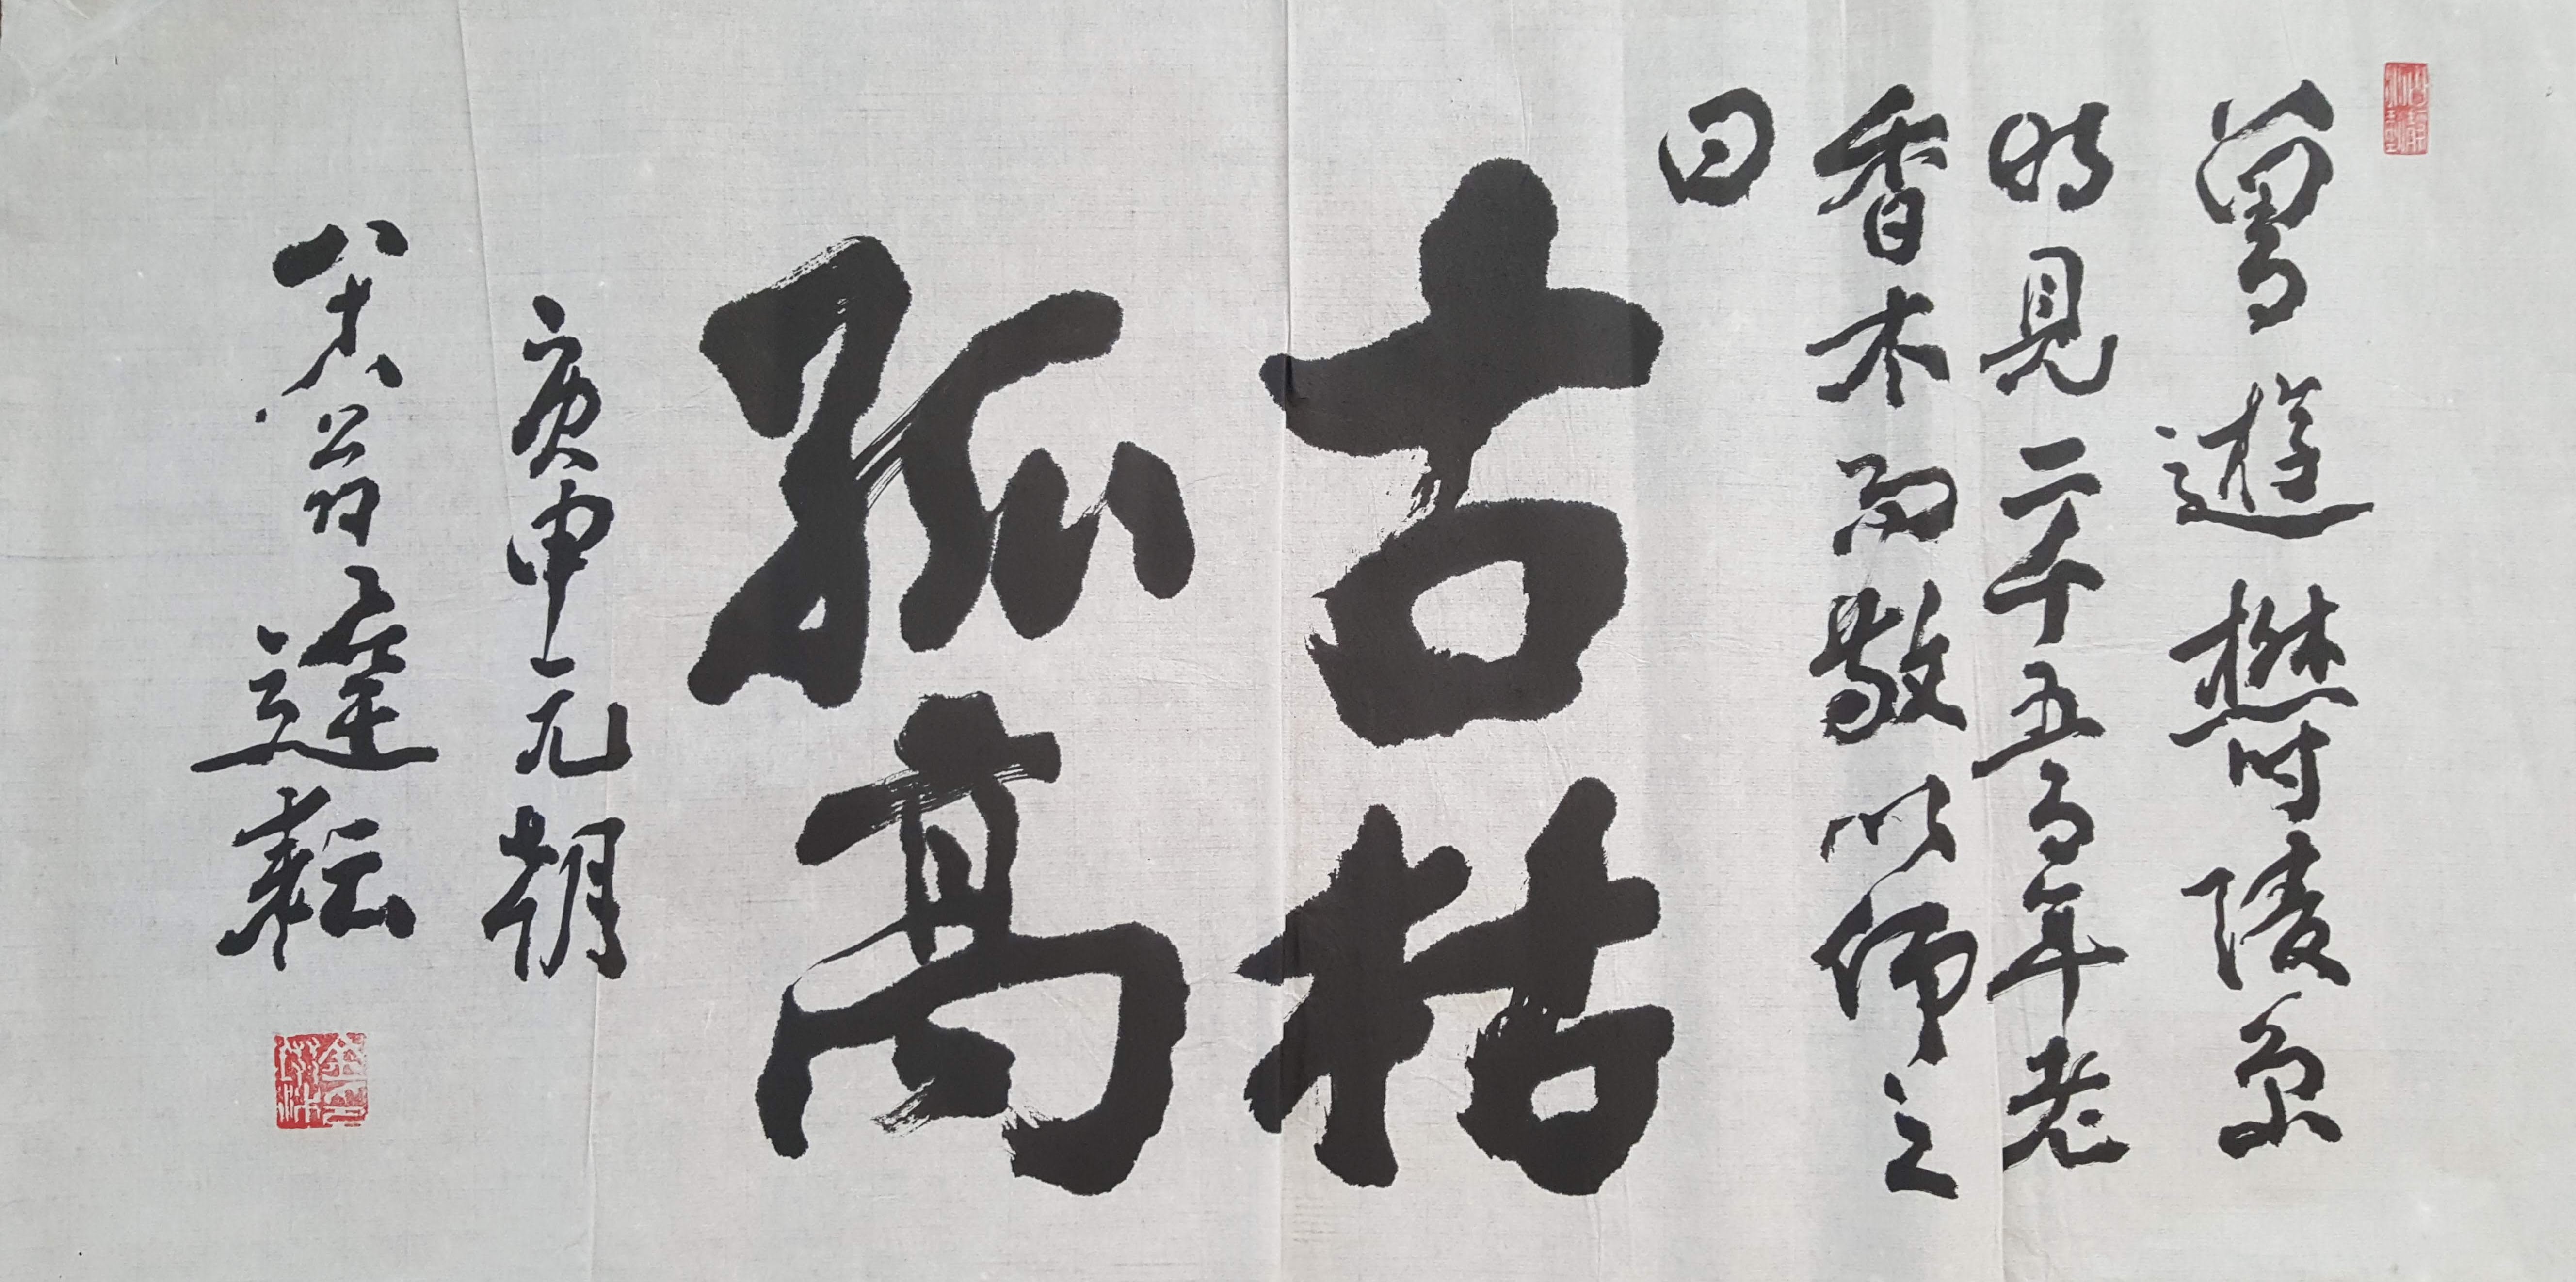 曾遊欝陵島
時見二千五百年老
香木而敬以師之
曰
古枯
孤高
庚申元朝
八十八翁 耘